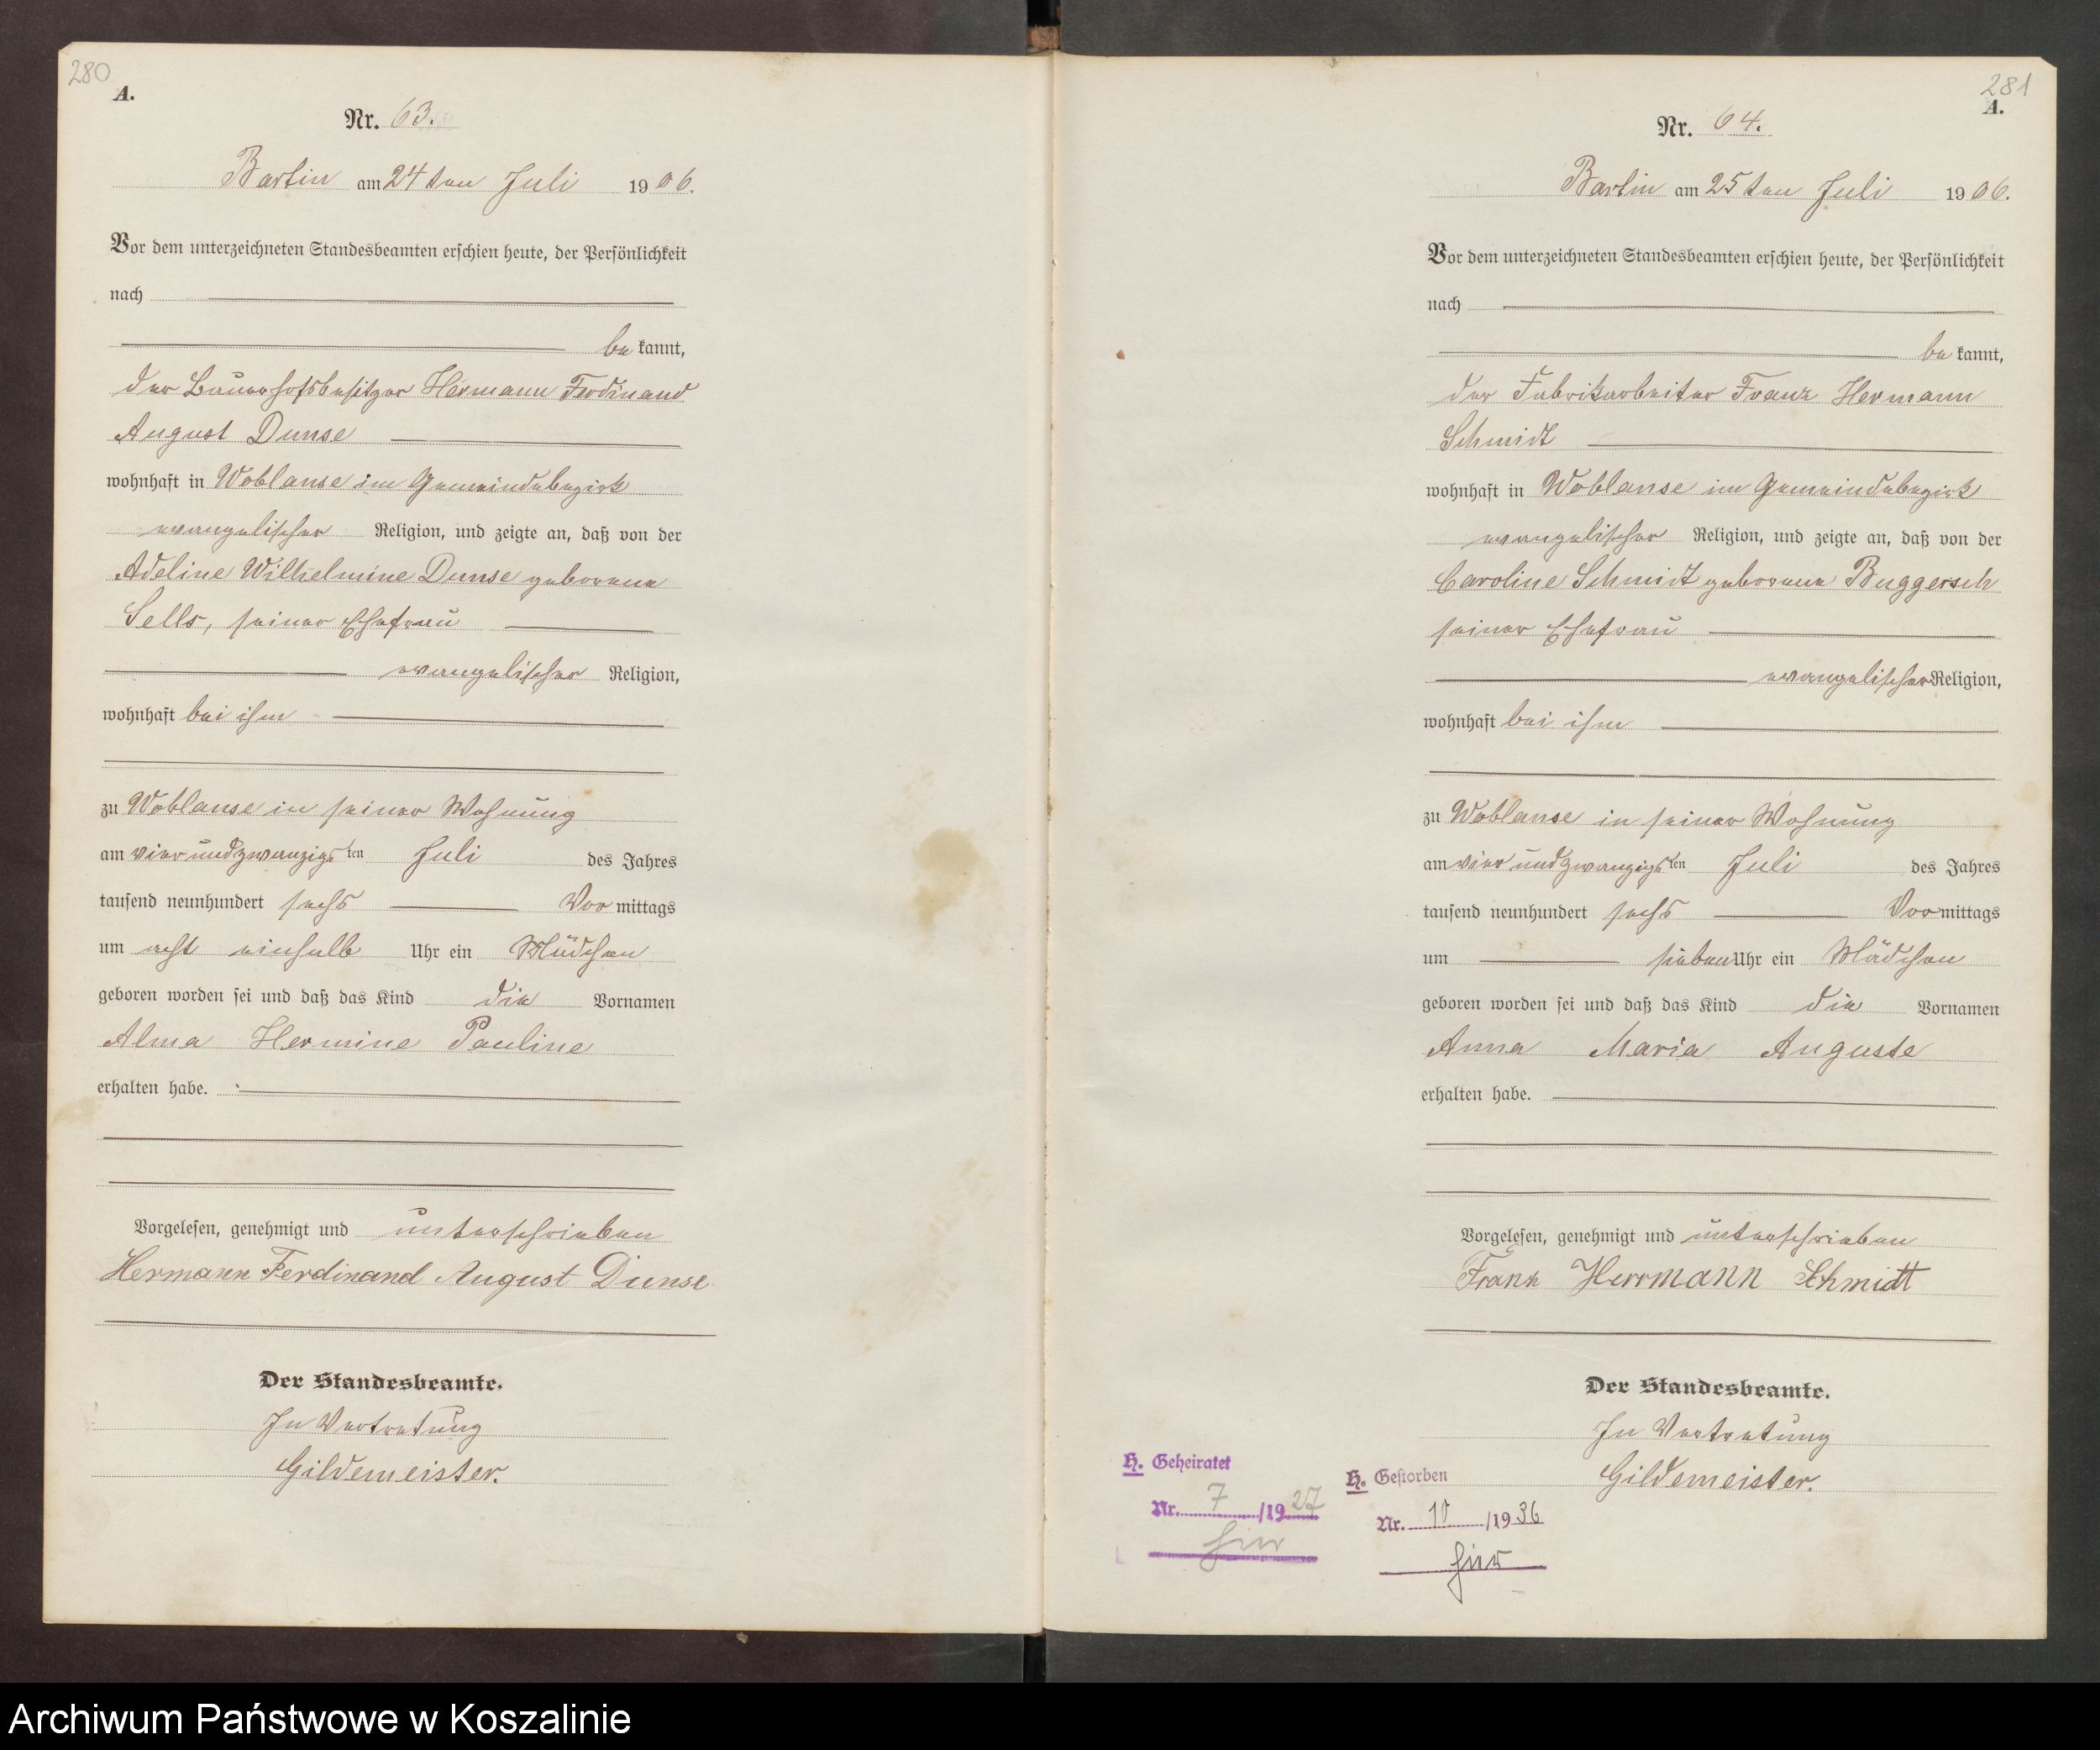 280
A.
Nr. 63.
Bartin am 24ten Juli 1906.
Vor dem unterzeichneten Standesbeamten erschien heute, der Persönlichkeit
nach
be kannt,
der Bauerhofsbesitzer Hermann Ferdinand
August Dunse
wohnhaft in Woblanse im Gemeindebezirk
evangelischer Religion, und zeigte an, daß von der
Adeline Wilhelmine Dunse geborene
Sells, seiner Ehefrau
evangelischer Religion,
wohnhaft bei ihm
zu Woblanse in seiner Wohnung
am vierundzwanzigsten Juli des Jahres
tausend neunhundert sechs Vormittags
um acht einhalb Uhr ein Mädchen
geboren worden sei und daß das Kind die Vornamen
Alma Hermine Pauline
erhalten habe.
Vorgelesen, genehmigt und unterschrieben
Hermann Ferdinand August Dunse
Der Standesbeamte.
In Vertretung
Gildemeister.
281
A.
Nr. 64.
Bartin am 25ten Juli 1906.
Vor dem unterzeichneten Standesbeamten erschien heute, der Persönlichkeit
nach
be kannt,
der Fabrikarbeiter Franz Hermann
Schmidt
wohnhaft in Woblanse im Gemeindebezirk
evangelischer Religion, und zeigte an, daß von der
Caroline Schmidt geborene Buggersch
seiner Ehefrau
evangelischer Religion,
wohnhaft bei ihm
zu Woblanse in seiner Wohnung
am vierundzwanzigsten Juli des Jahres
tausend neunhundert sechs Vormittags
um sieben Uhr ein Mädchen
geboren worden sei und daß das Kind die Vornamen
Anna Maria Auguste
erhalten habe.
Vorgelesen, genehmigt und unterschrieben
Franz Herrmann Schmidt
Der Standesbeamte.
In Vertretung
Gildemeister.
H. Geheiratet
Nr. 7/1927
hier
H. Gestorben
Nr. 10/1936
hier
Archiwum Państwowe w Koszalinie